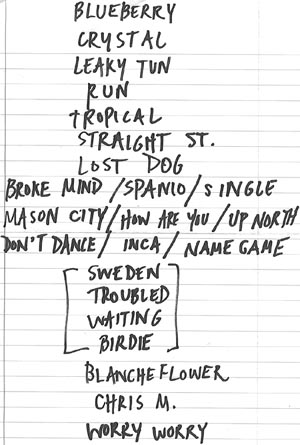 BLUEBERRY
CRYSTAL
LEAKY TUN
RUN
TROPICAL
STRAIGHT ST.
LOST DOG
BROKE MIND / SPANIO / SINGLE
MASON CITY / HOW ARE YOU / UP NORTH
DON'T DANCE / INCA / NAME GAME
SWEDEN
TROUBLED
WAITING
BIRDIE
BLANCHEFLOWER
CHRIS M.
WORRY WORRY